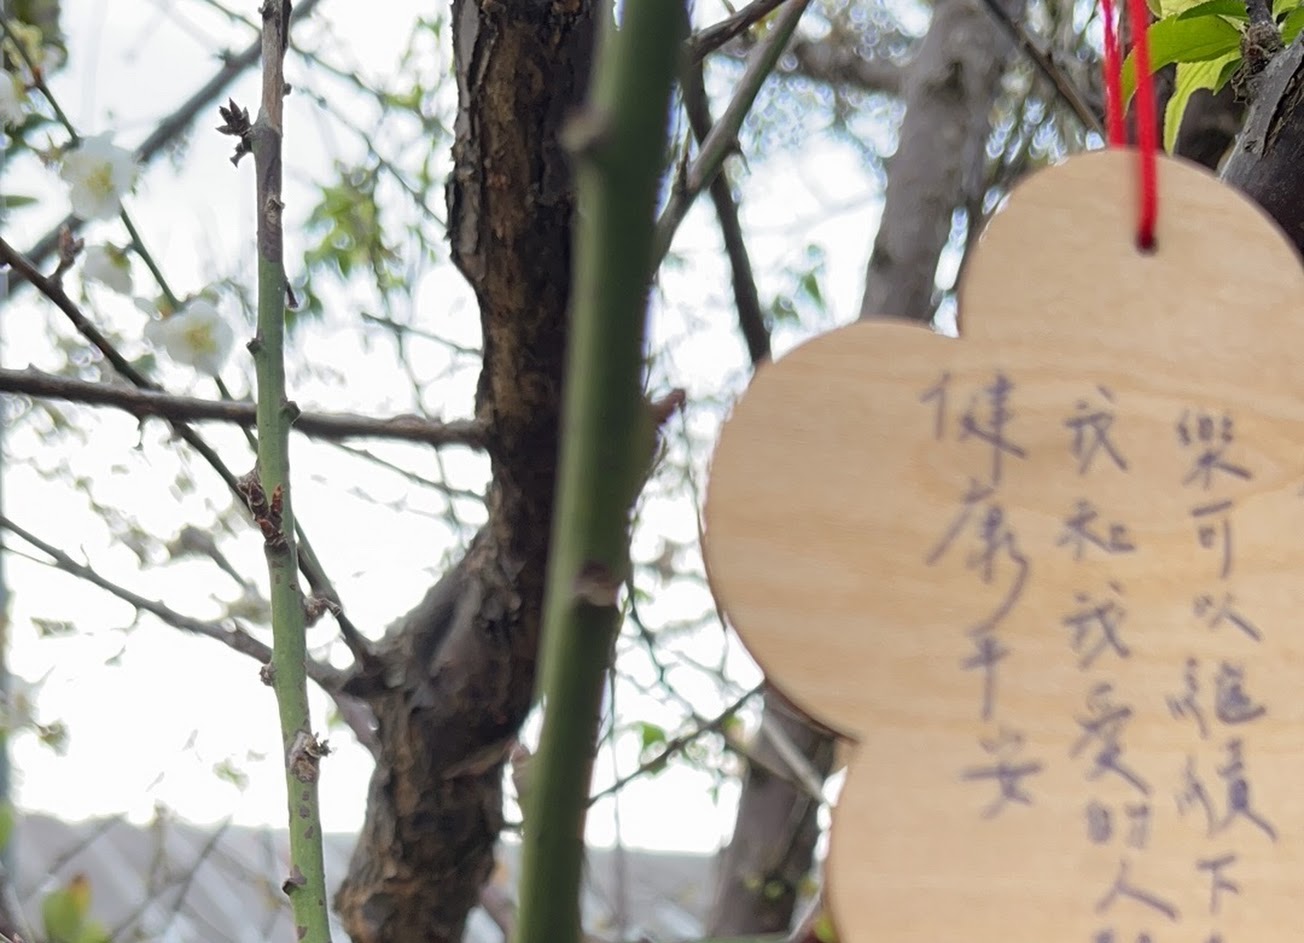 樂可以繼續下
我和我愛的人
健康平安